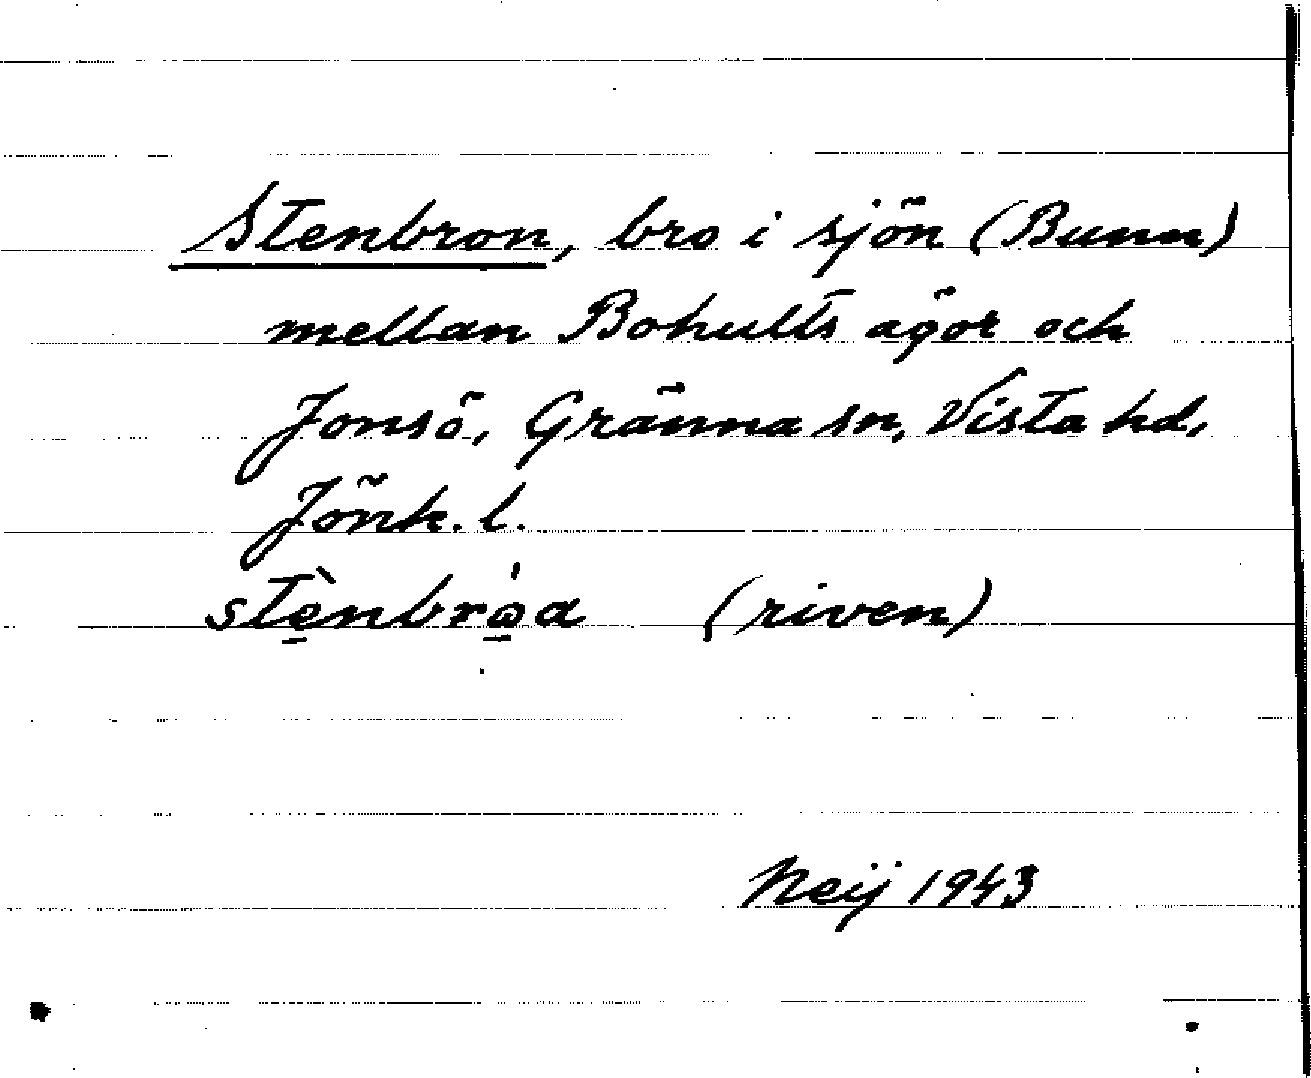 Stenbron, bro i sjön (Bunn)
mellan Bohults ägor och
Jonsö, Gränna sn, Vista hd,
Jönk. l.
stè̠nbrò̠a (riven)
Neij 1943